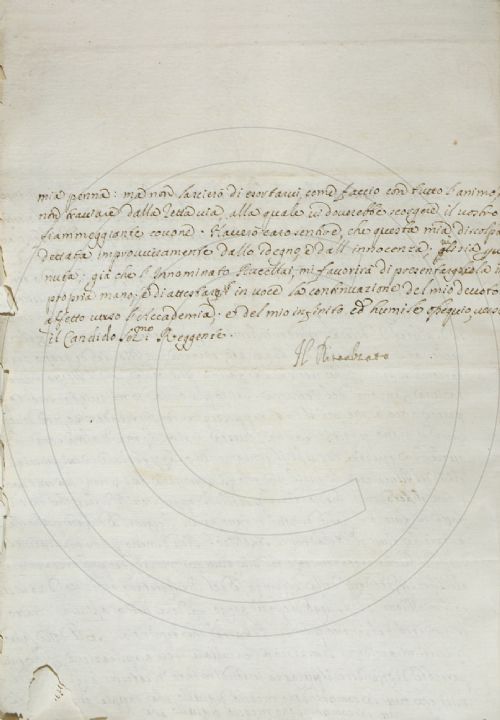 mia penna: mà non lascierò di esortarvi, come faccio con tutto l'animo, à
non traviare dalla retta via, alla quale vi dovrebbe scorgere il vostro
fiammeggiante covone. Haverò caro sentire, che questa mia discolpa
dettata improvvisamente dallo sdegno, e dall'innocenza, gli sia
nuta; già che l'Innominato Rucellai, mi favorirà di presentargliela in
propria mano, e di attestargli in voce la continuazione del mio devoto
affetto verso l'Accademia, e del mio infinito ed humile ossequio, verso
il Candido Ser.mo Reggente.
Il